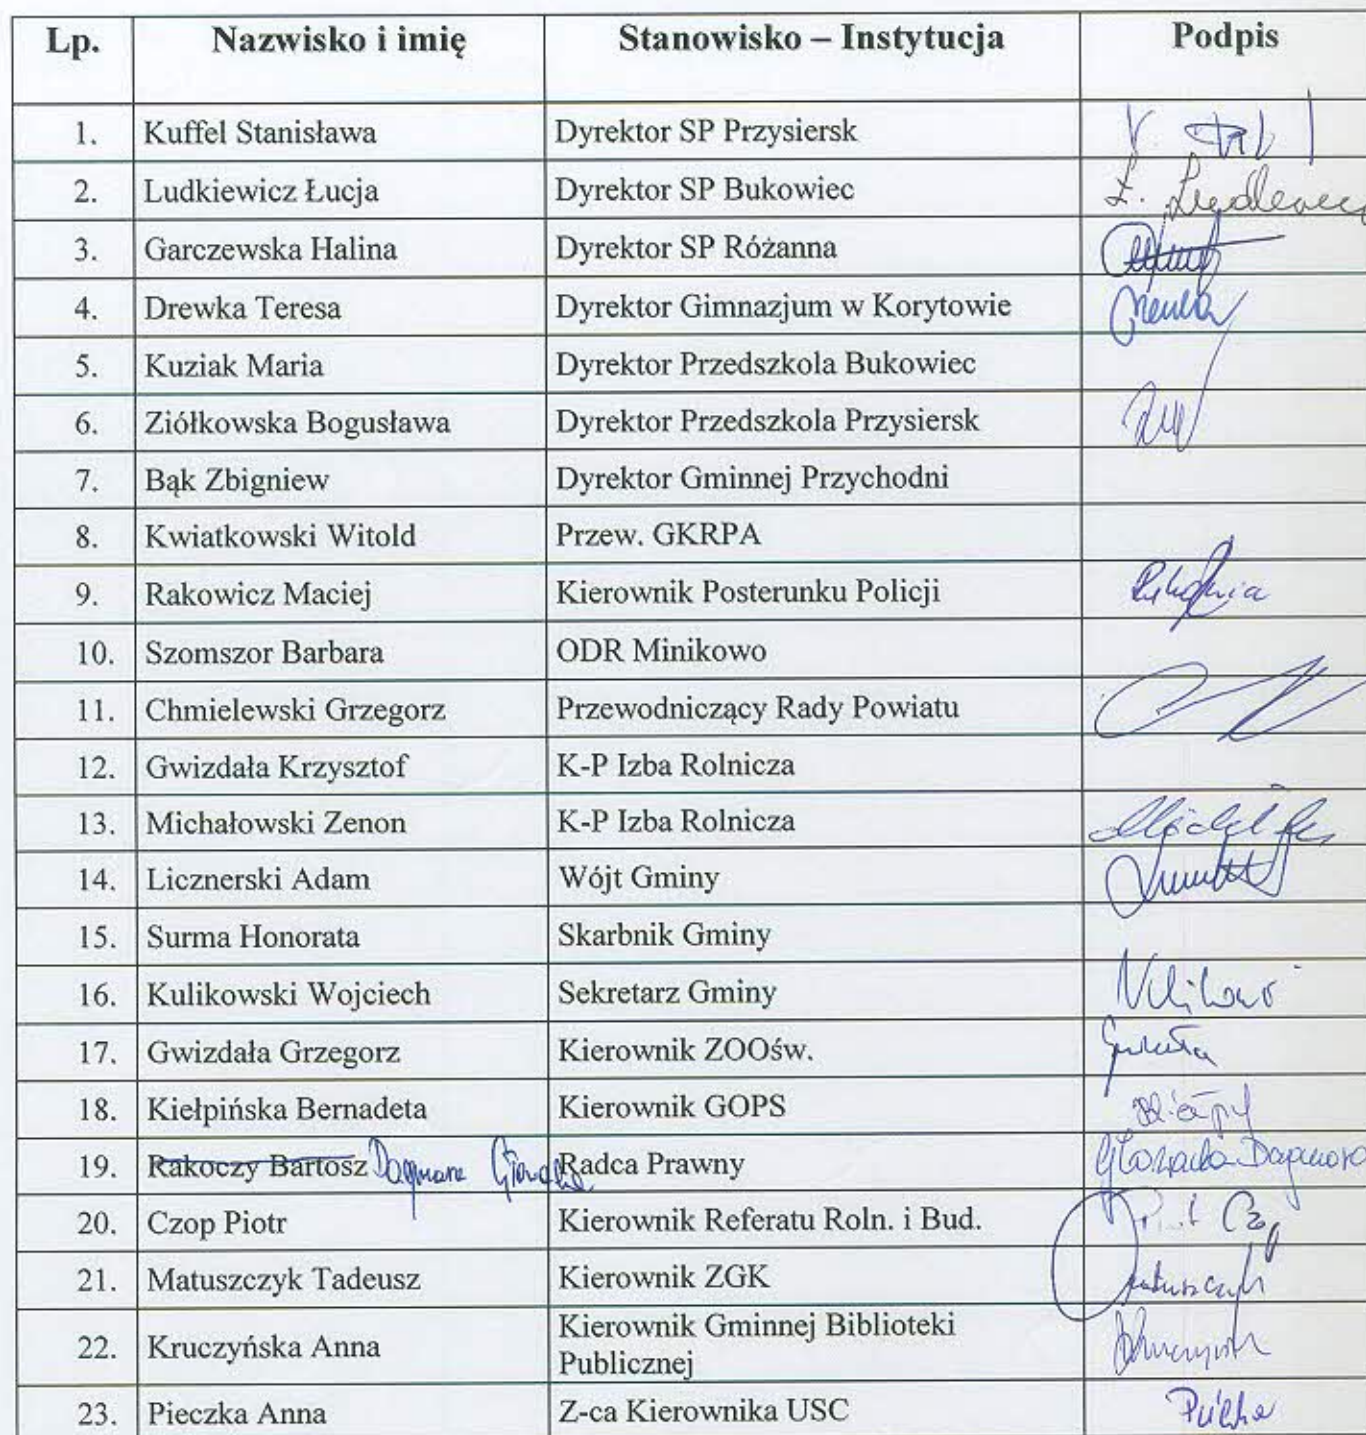 Lp. Nazwisko i imię Stanowisko – Instytucja Podpis
1. Kuffel Stanisława Dyrektor SP Przysiersk
2. Ludkiewicz Łucja Dyrektor SP Bukowiec
3. Garczewska Halina Dyrektor SP Różanna
4. Drewka Teresa Dyrektor Gimnazjum w Korytowie
5. Kuziak Maria Dyrektor Przedszkola Bukowiec
6. Ziółkowska Bogusława Dyrektor Przedszkola Przysiersk
7. Bąk Zbigniew Dyrektor Gminnej Przychodni
8. Kwiatkowski Witold Przew. GKRPA
9. Rakowicz Maciej Kierownik Posterunku Policji
10. Szomszor Barbara ODR Minikowo
11. Chmielewski Grzegorz Przewodniczący Rady Powiatu
12. Gwizdała Krzysztof K-P Izba Rolnicza
13. Michałowski Zenon K-P Izba Rolnicza
14. Licznerski Adam Wójt Gminy
15. Surma Honorata Skarbnik Gminy
16. Kulikowski Wojciech Sekretarz Gminy
17. Gwizdała Grzegorz Kierownik ZOOśw.
18. Kiełpińska Bernadeta Kierownik GOPS
19. Rakoczy Bartosz Dagmara Radca Prawny Dagmara
20. Czop Piotr Kierownik Referatu Roln. i Bud.
21. Matuszczyk Tadeusz Kierownik ZGK
22. Kruczyńska Anna Kierownik Gminnej Biblioteki
Publicznej
23. Pieczka Anna Z-ca Kierownika USC